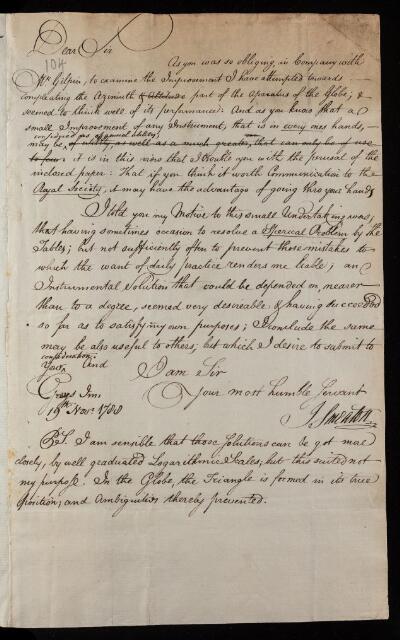 Dear Sir
104
As you was so obliging, in Company with
Mr. Gilpin, to examine the Improvement I have attempted towards
compleating the Azimuth & Altitude part of the Aparatus of the Globe; &
seemed to think well of its performance: And as you know that a
small Improvement of any Instrument, that is in every ones hands,
considered as of equal value;
may be, of utility, as well as a much greater, that can only be of use
to few: it is in this view that I trouble you with the perusal of the
inclosed paper: That if you think it worth Communication to the
Royal Society, it may have the advantage of going thro' your hands
I told you my Motive to this small Undertaking was;
that having sometimes occasion to resolve a Spherical Problem by the
Tables; but not sufficiently often to prevent those mistakes to
which the want of daily practice renders me liable; an
Instrumental Solution that could be depended on, nearer
than to a degree, seemed very desireable: & having succeeded
so far as to satisfy my own purposes; I conclude the same
may be also useful to others; but which I desire to submit to
consideration;
Your, And I am Sir
Grays Inn Your most humble Servant
19th Novr. 1788 J. Smeaton
P.S. I am sensible that those Solutions can be got more
closely, by well graduated Logarithmic Scales; but this suited not
my purpose. In the Globe, the Triangle is formed in its true
position; and Ambiguities thereby prevented.